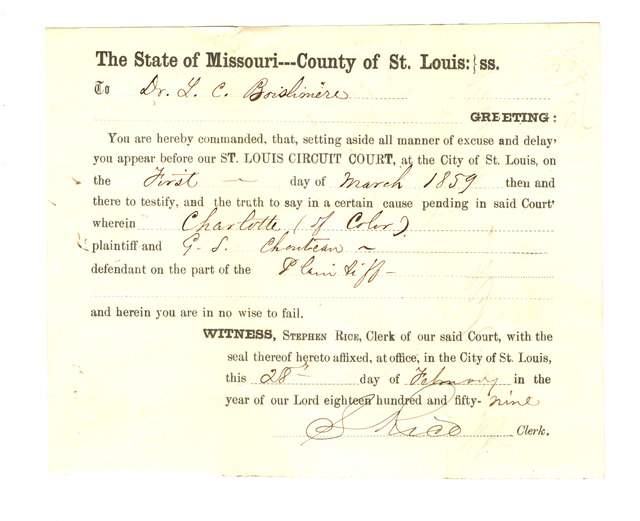 The State of Missouri---County of St. Louis:}ss.
To Dr. L. C. Boislinière
GREETING:
You are hereby commanded, that, setting aside all manner of excuse and delay'
you appear before our ST. LOUIS CIRCUIT COURT, at the City of St. Louis, on
the First — day of March 1859 then and
there to testify, and the truth to say in a certain cause pending in said Court'
wherein Charlotte (of Color)
plaintiff and G. S. Chouteau ~
defendant on the part of the Plaintiff –
and herein you are in no wise to fail.
WITNESS, STEPHEN RICE, Clerk of our said Court, with the
seal thereof hereto affixed, at office, in the City of St. Louis,
this 28" day of February in the
year of our Lord eighteen hundred and fifty- nine
S Rice Clerk.